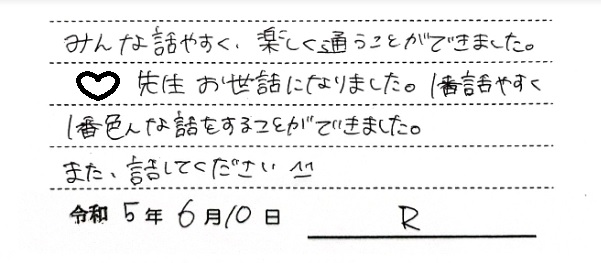 みんな話やすく、楽しく通うことができました。
♡ 先生 お世話になりました。1番話やすく
1番色んな話をすることができました。
また、話してください ^^
令和 5年 6月10日 R